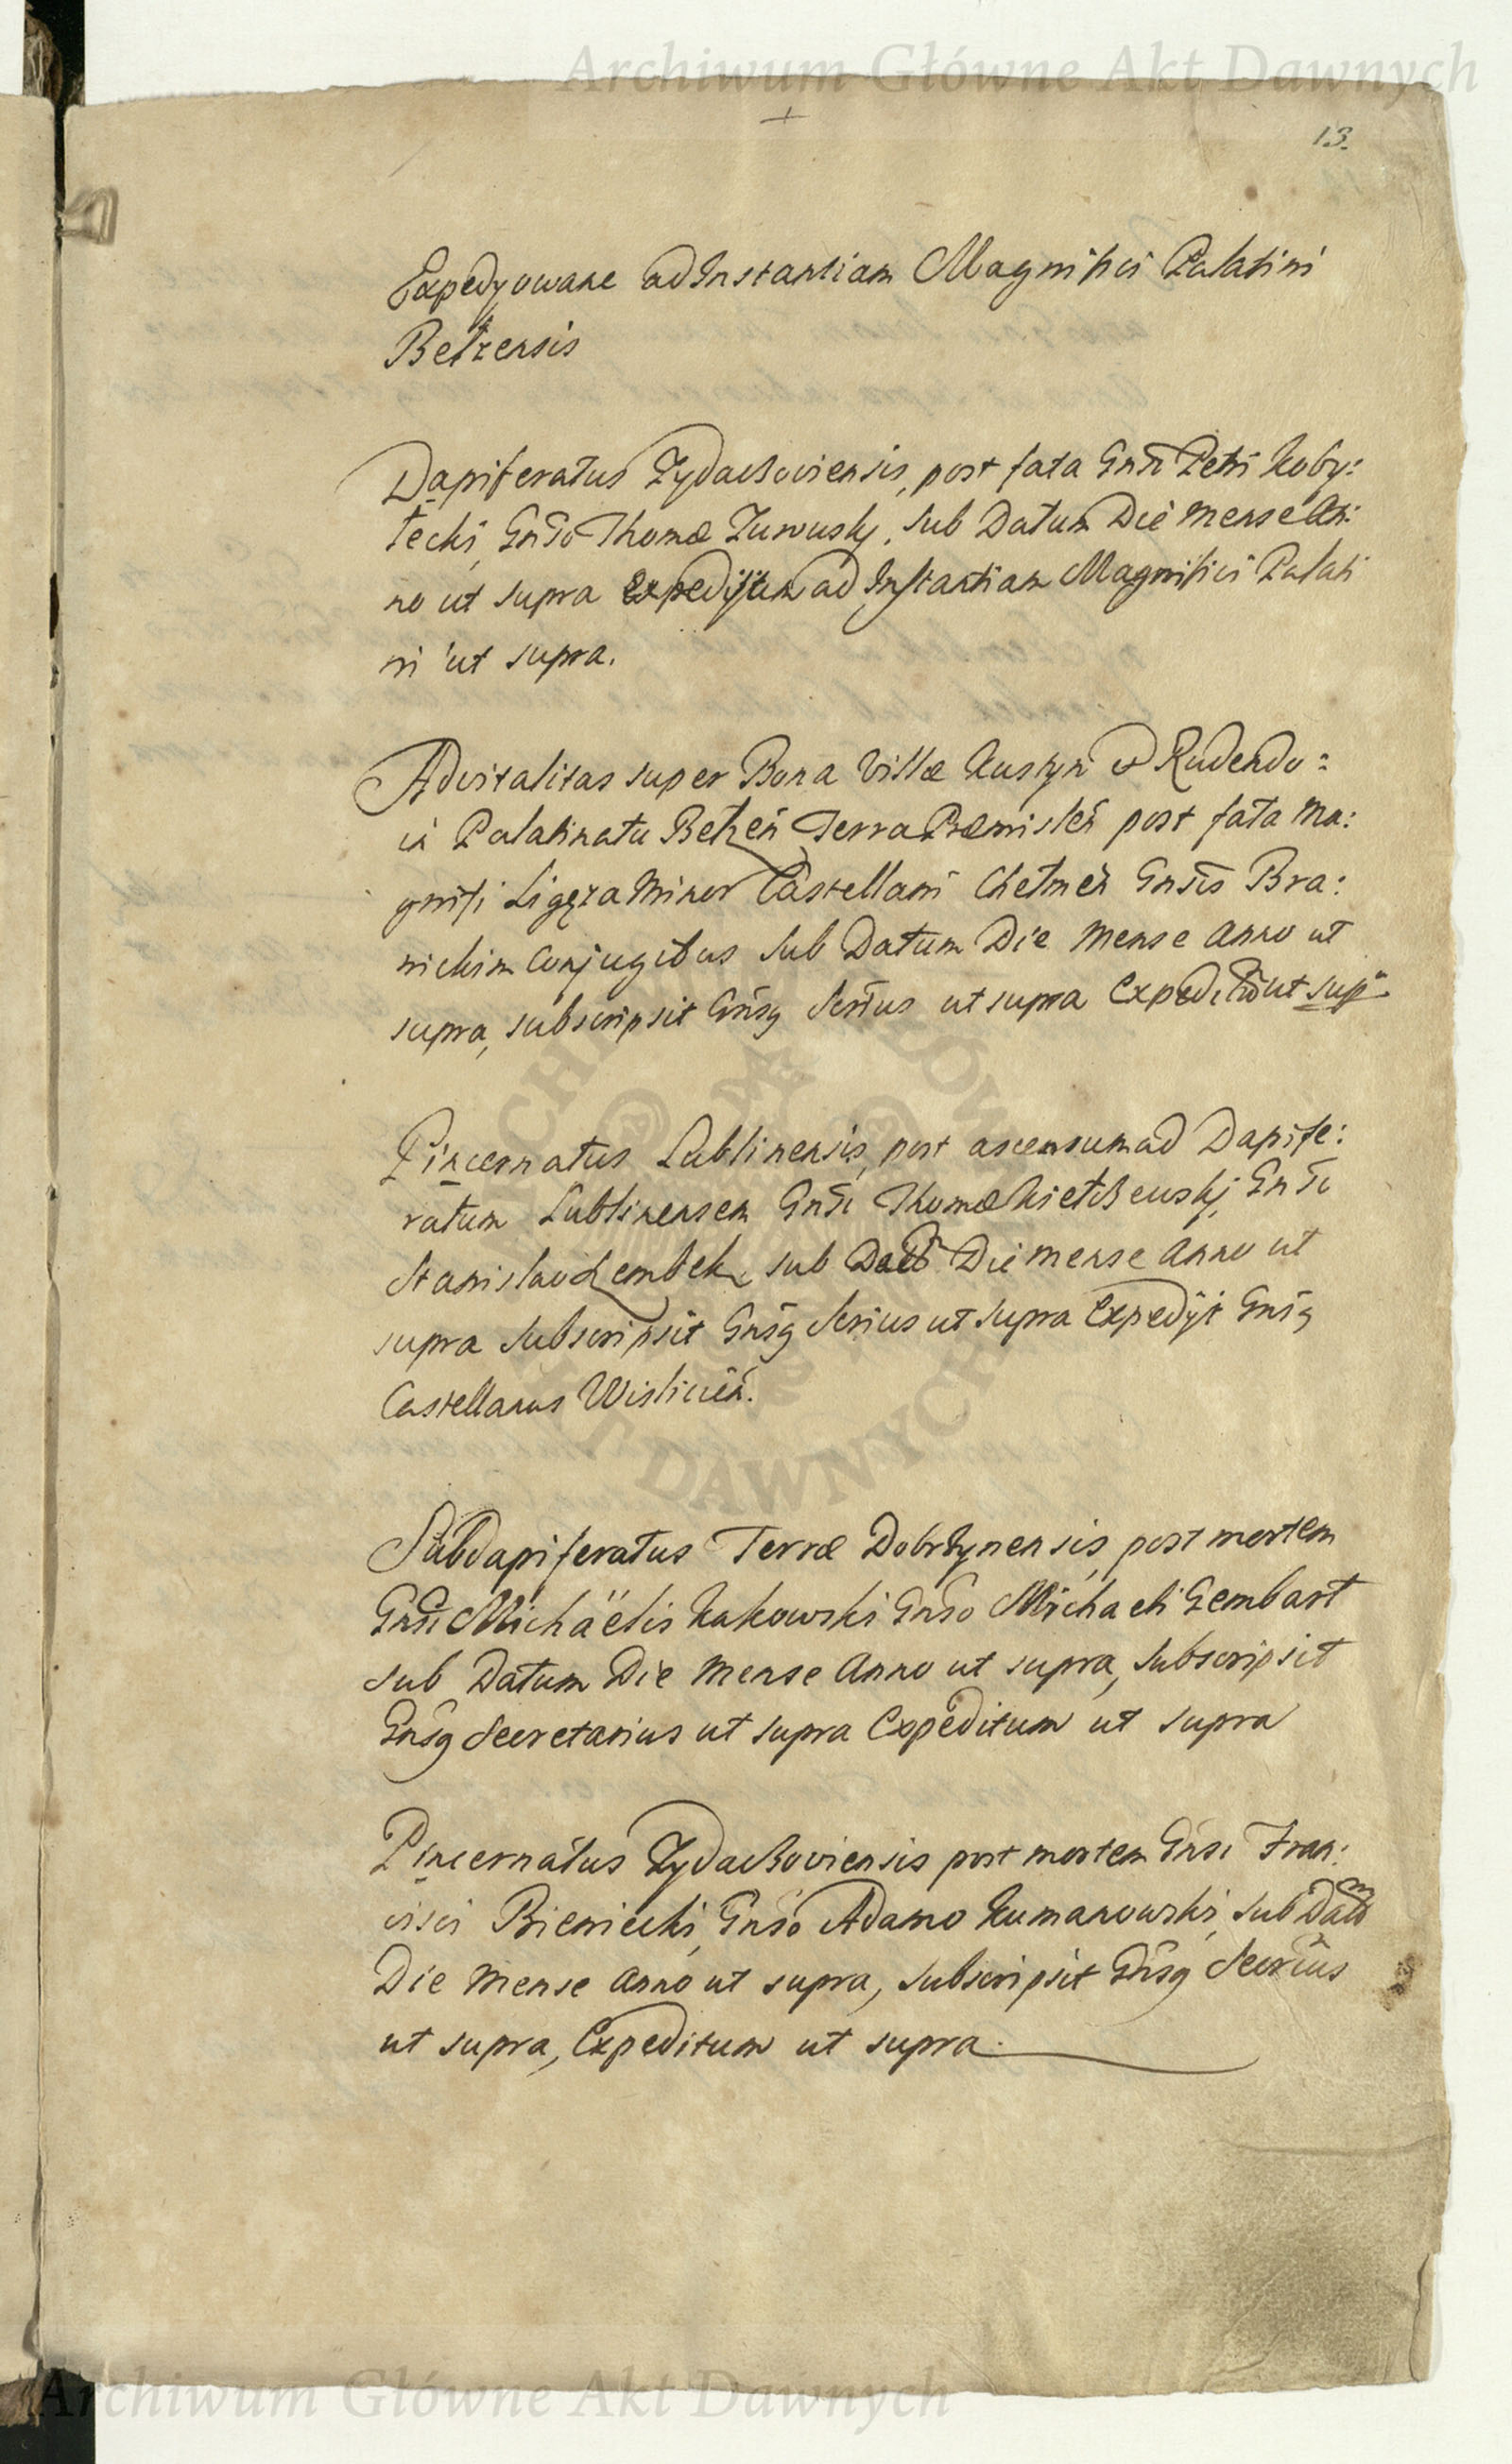 Archiwum Główne Akt Dawnych
13.
Expedyowane ad Instantiam Magnifici Palatini
Betzensis
Dapiferatus Zydaczoviensis, post fata Gnsi Petri Koby:
łecki, Gnso Thomæ Zurwusky, sub Datum Die Mense An:
no ut supra Expeditum ad Instantiam Magnifici Palati
ni ut supra.
Advitalitas super Bona Villæ Kustyn & Rudendo:
in Palatinatu Betzen Terra Præmislen post fata Ma:
gnifi Ligęza Minor Castellani Chełmen Gnsis Bra:
nickim Conjugibus sub Datum Die Mense Anno ut
supra, subscripsit Gnsq Serius ut supra Expeditū ut sup
Pincernatus Lublinensis, post ascensum ad Dapife:
ratum Lublinensem Gnsi Thomæ Kiełczewskj, Gnsi
Stanislao Lembek, sub Datō Die Mense Anno ut
supra subscripsit Gnsq Serius ut supra Expedijt Gnsq
Castellanus Wislicien.
Subdapiferatus Terræ Dobrzynensis, post mortem
Gnsi Michäelis Kakowski Gnso Michaeli Gembart
sub Datum Die Mense Anno ut supra, subscripsit
Gnsq Secretarius ut supra Expeditum ut supra
Pincernatus Zydaczoviensis post mortem Gnsi Fran:
cisci Bieniecki, Gnso Adamo Kumanowski, sub Datō
Die Mense Anno ut supra, subscripsit Gnsq Secrius
ut supra, Expeditum ut supra.
Archiwum Główne Akt Dawnych